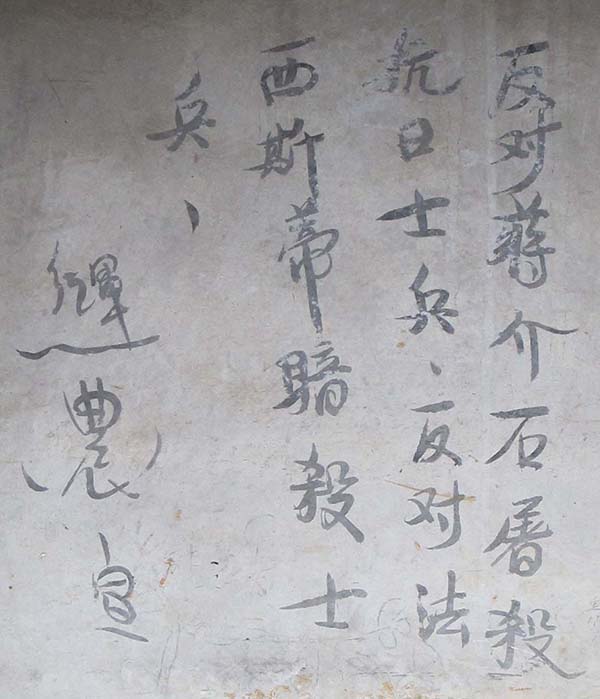 反对蒋介石屠殺
抗日士兵、反对法
西斯蒂暗殺士
兵、
红軍(農)宣